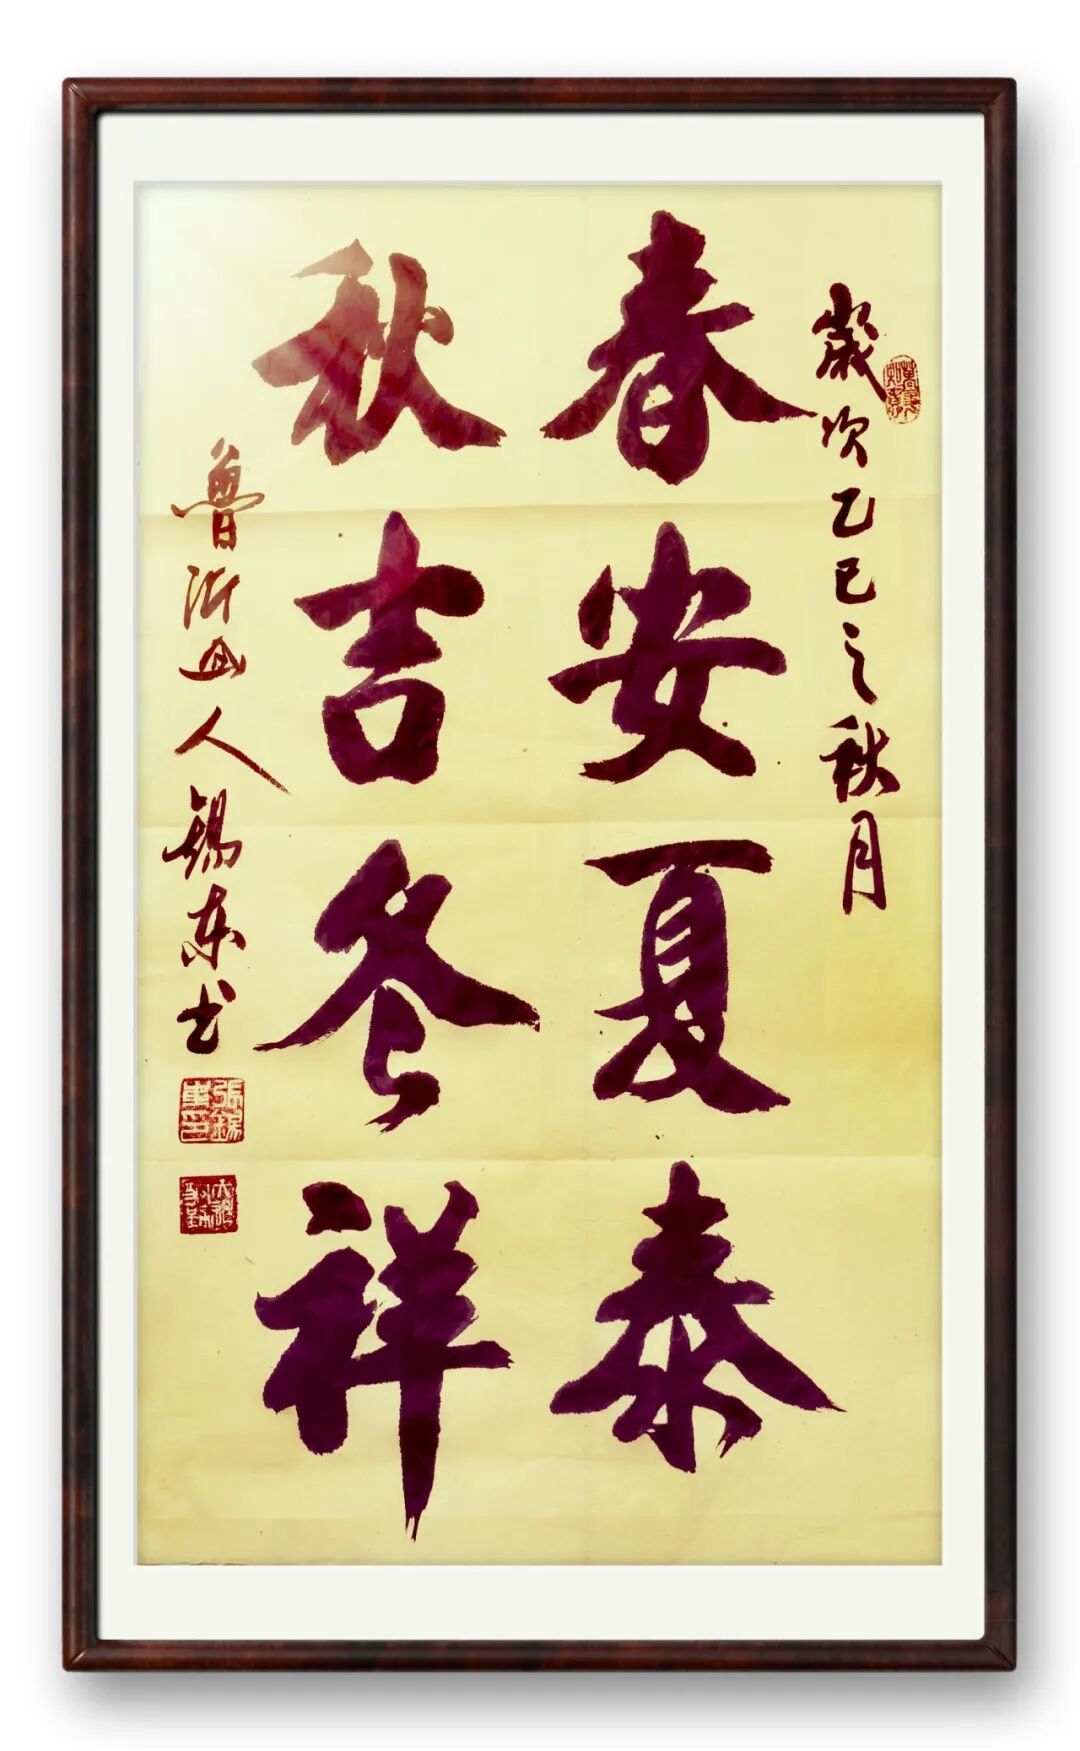 歲次乙巳之秋月
春安夏泰
秋吉冬祥
魯沂山人錫東书